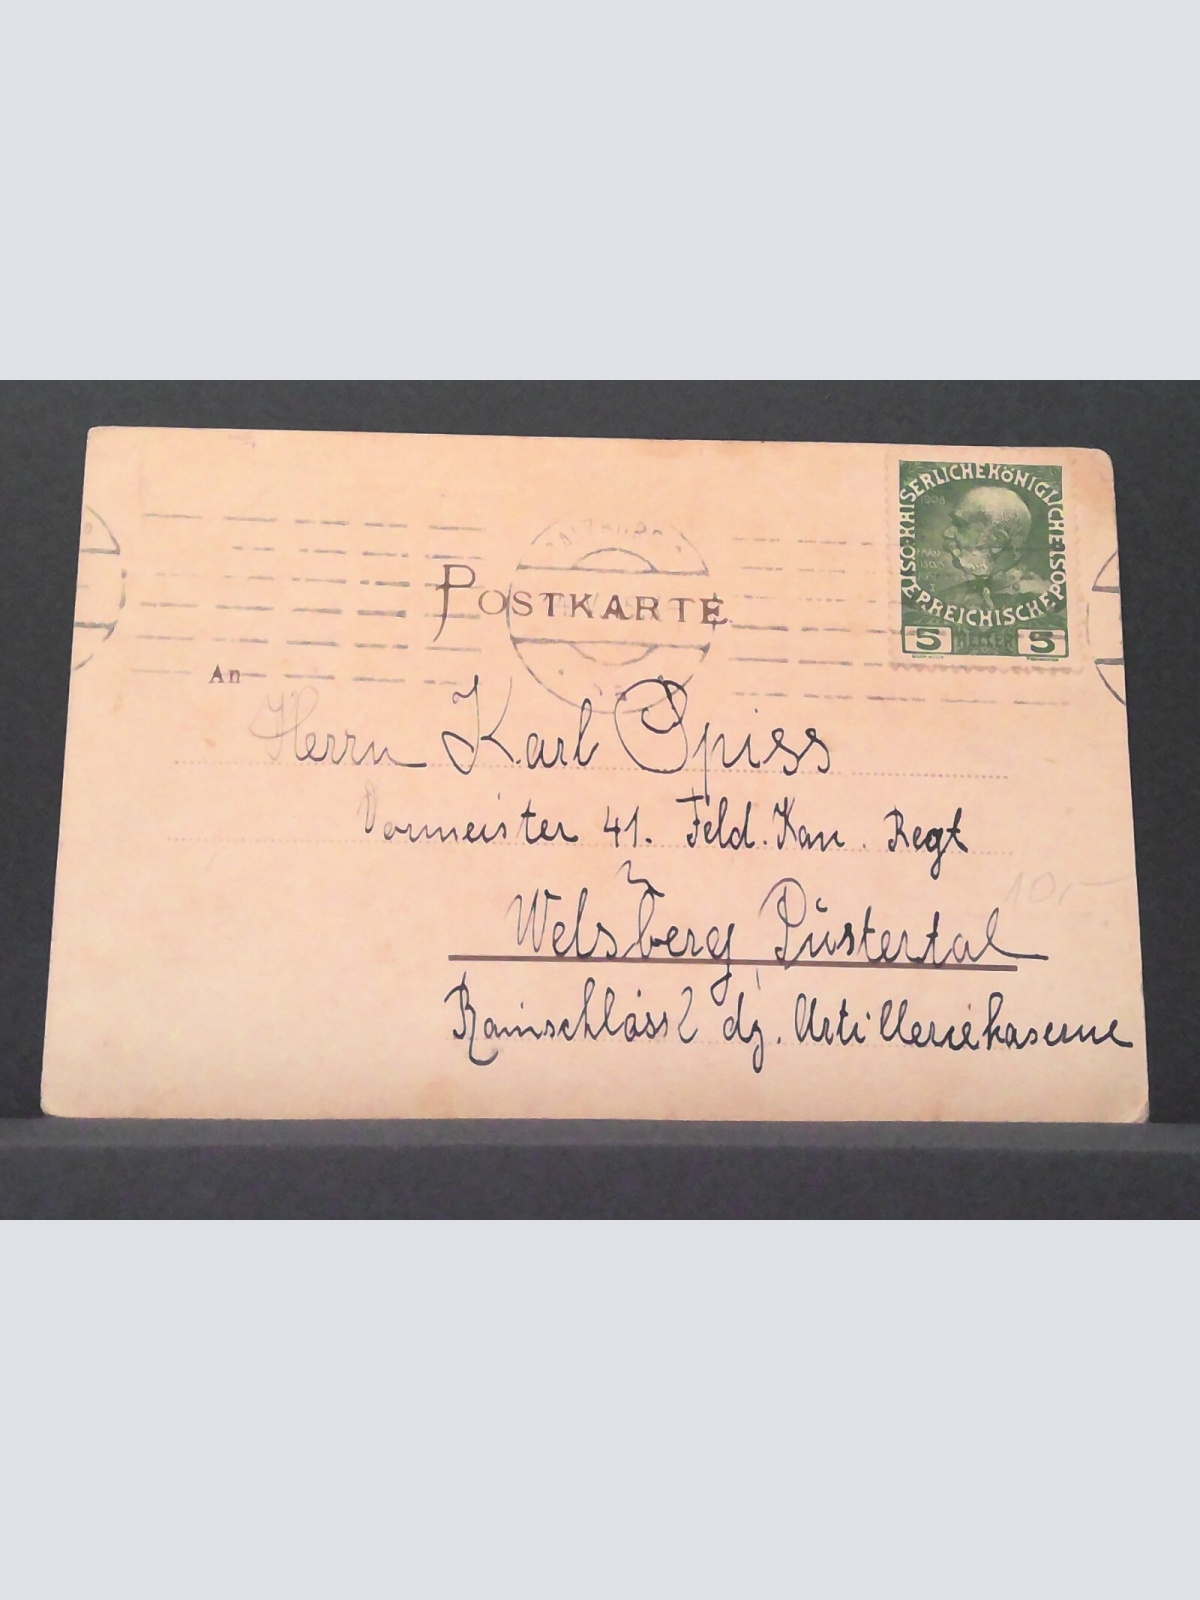 KAISERLICHE KÖNIGLICHE ÖSTERREICHISCHE POST
1908
5 HELLER 5
POSTKARTE
An
Herrn Karl Spiss
Vormeister 41. Feld. Kan. Regt
Welsberg Pustertal
dz. Artilleriekaserne
10,-